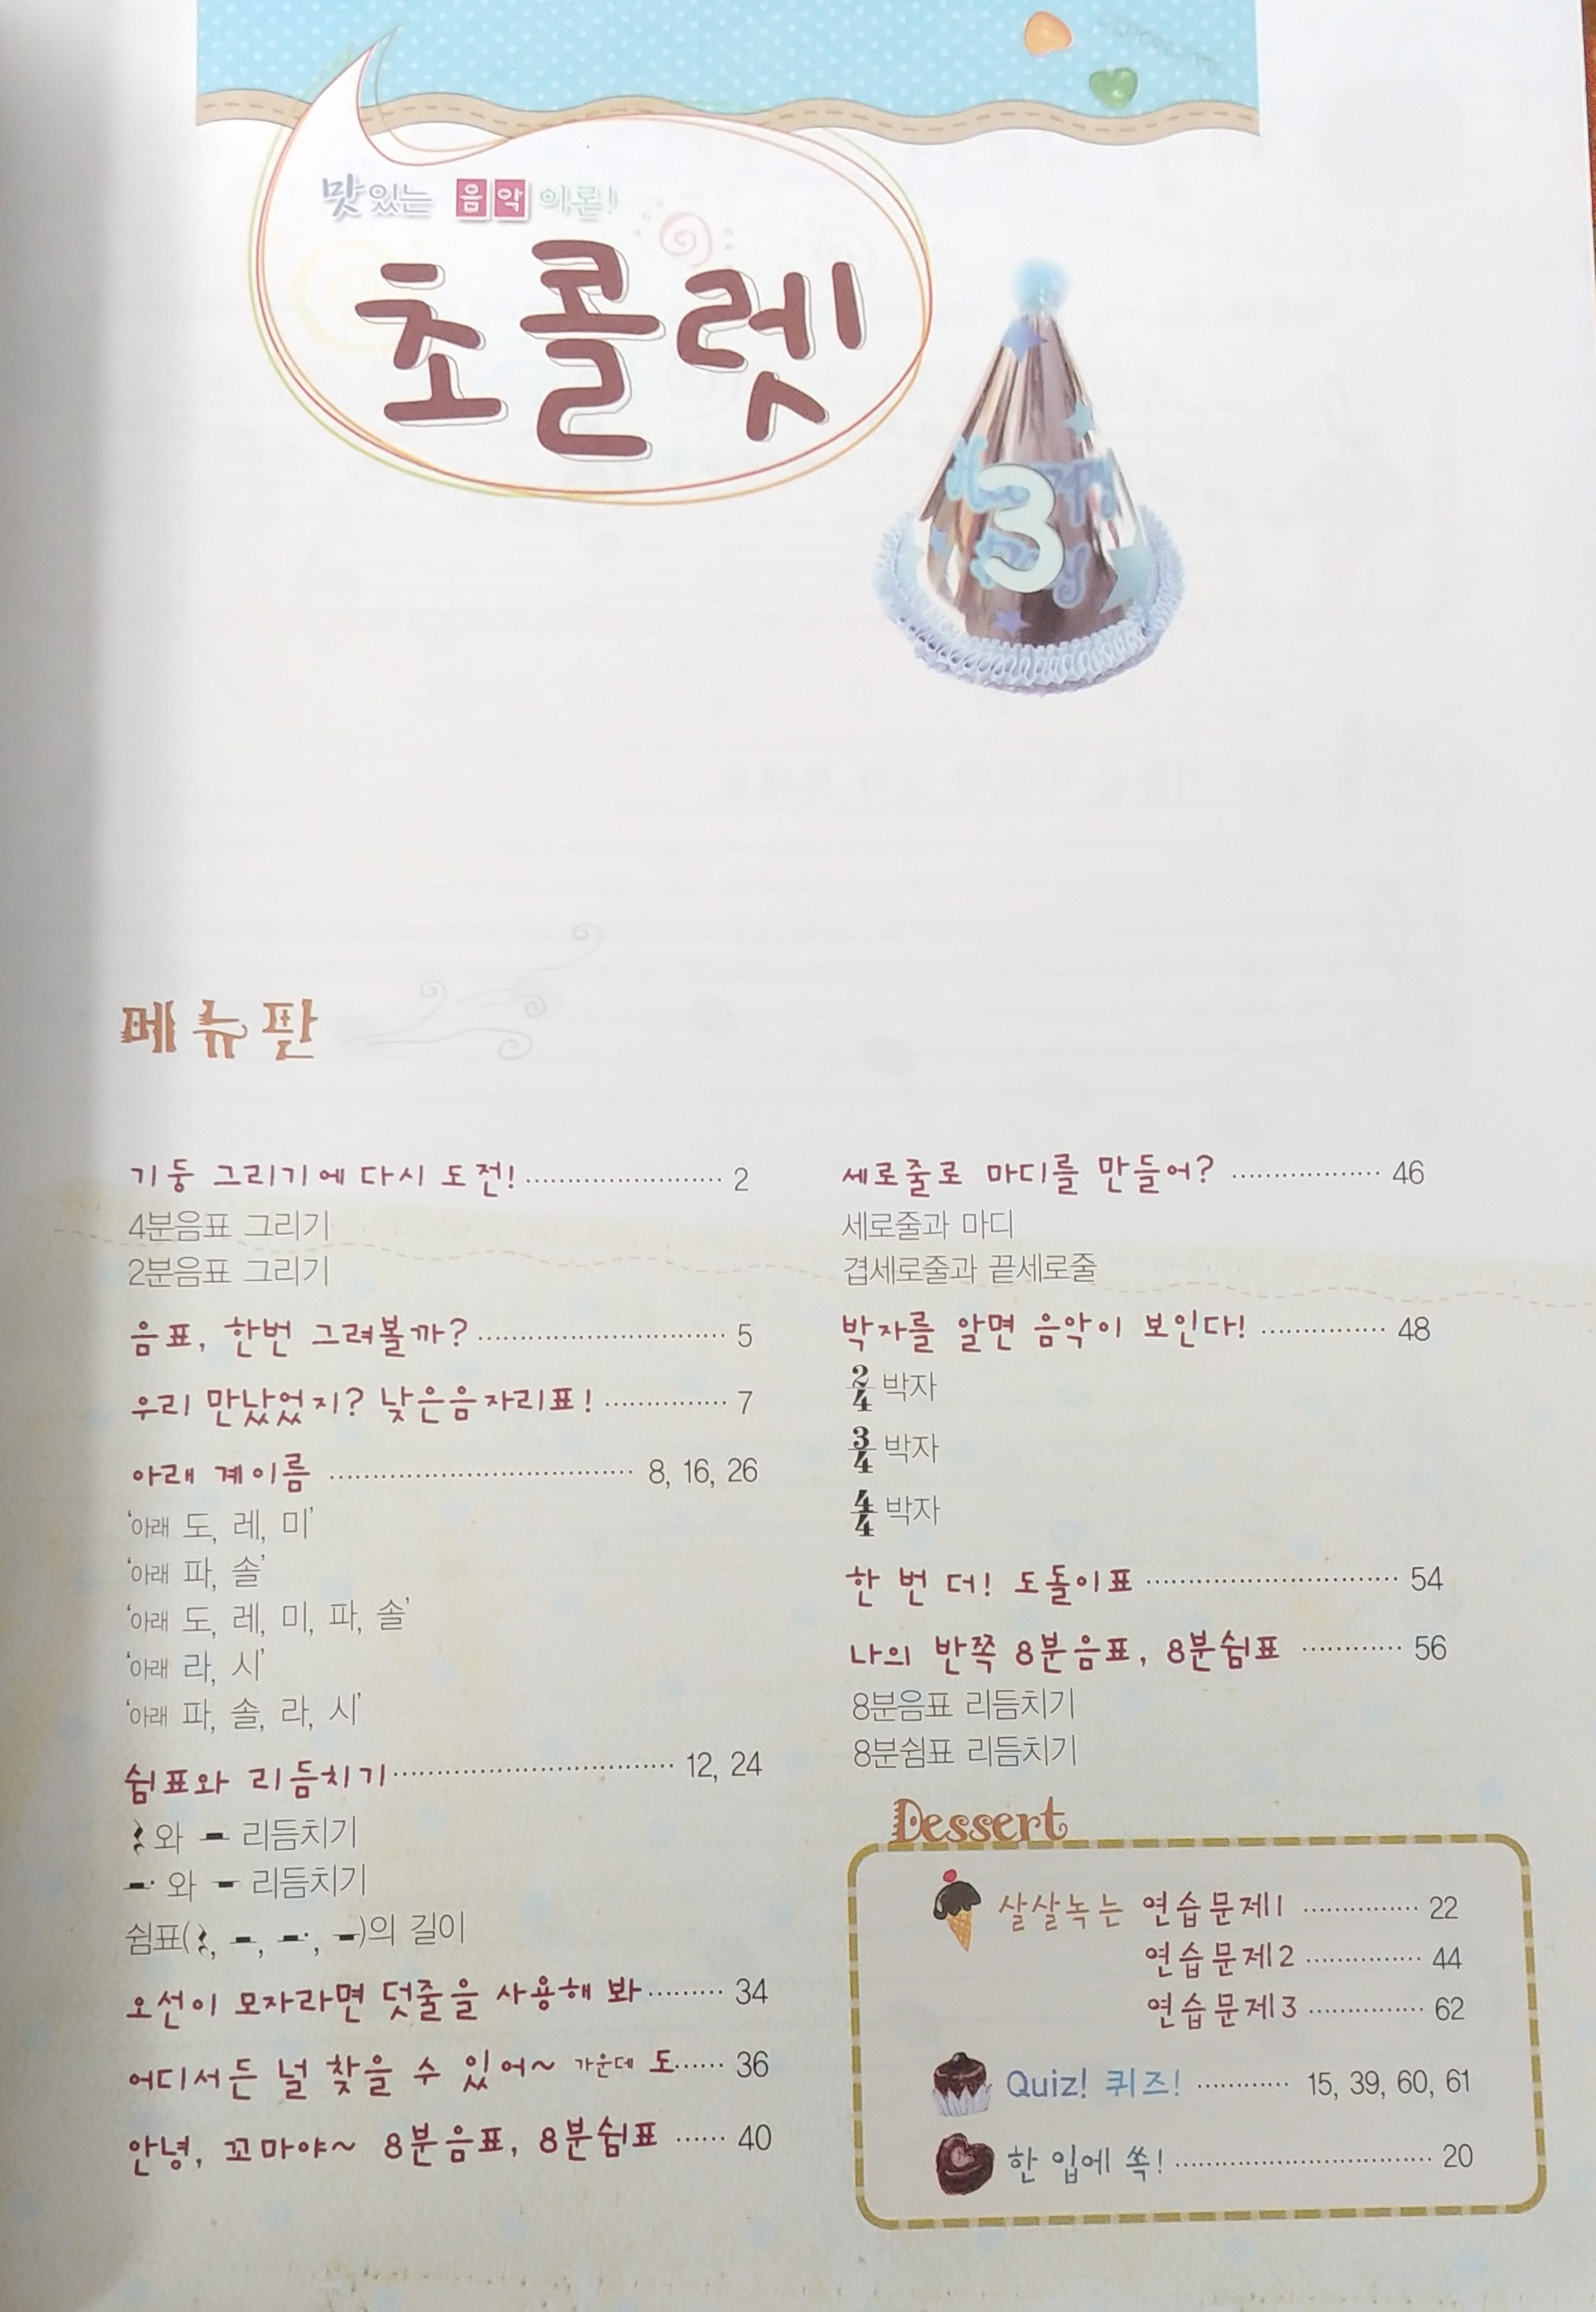 맛있는 음악 이론!
초콜렛
3
메뉴판
기둥 그리기에 다시 도전! 2
4분음표 그리기
2분음표 그리기
음표, 한번 그려볼까? 5
우리 만났었지? 낮은음자리표! 7
아래 계이름 8, 16, 26
‘아래 도, 레, 미’
‘아래 파, 솔’
‘아래 도, 레, 미, 파, 솔’
‘아래 라, 시’
‘아래 파, 솔, 라, 시’
쉼표와 리듬치기 12, 24
𝄽와 𝄼 리듬치기
𝄼· 와 𝄻 리듬치기
쉼표(𝄽, 𝄼, 𝄼·, 𝄻)의 길이
오선이 모자라면 덧줄을 사용해 봐 34
어디서든 널 찾을 수 있어~ 가운데 도 36
안녕, 꼬마야~ 8분음표, 8분쉼표 40
세로줄로 마디를 만들어? 46
세로줄과 마디
겹세로줄과 끝세로줄
박자를 알면 음악이 보인다! 48
2/4 박자
3/4 박자
4/4 박자
한 번 더! 도돌이표 54
나의 반쪽 8분음표, 8분쉼표 56
8분음표 리듬치기
8분쉼표 리듬치기
Dessert
살살녹는 연습문제1 22
연습문제2 44
연습문제3 62
Quiz! 퀴즈! 15, 39, 60, 61
한 입에 쏙! 20